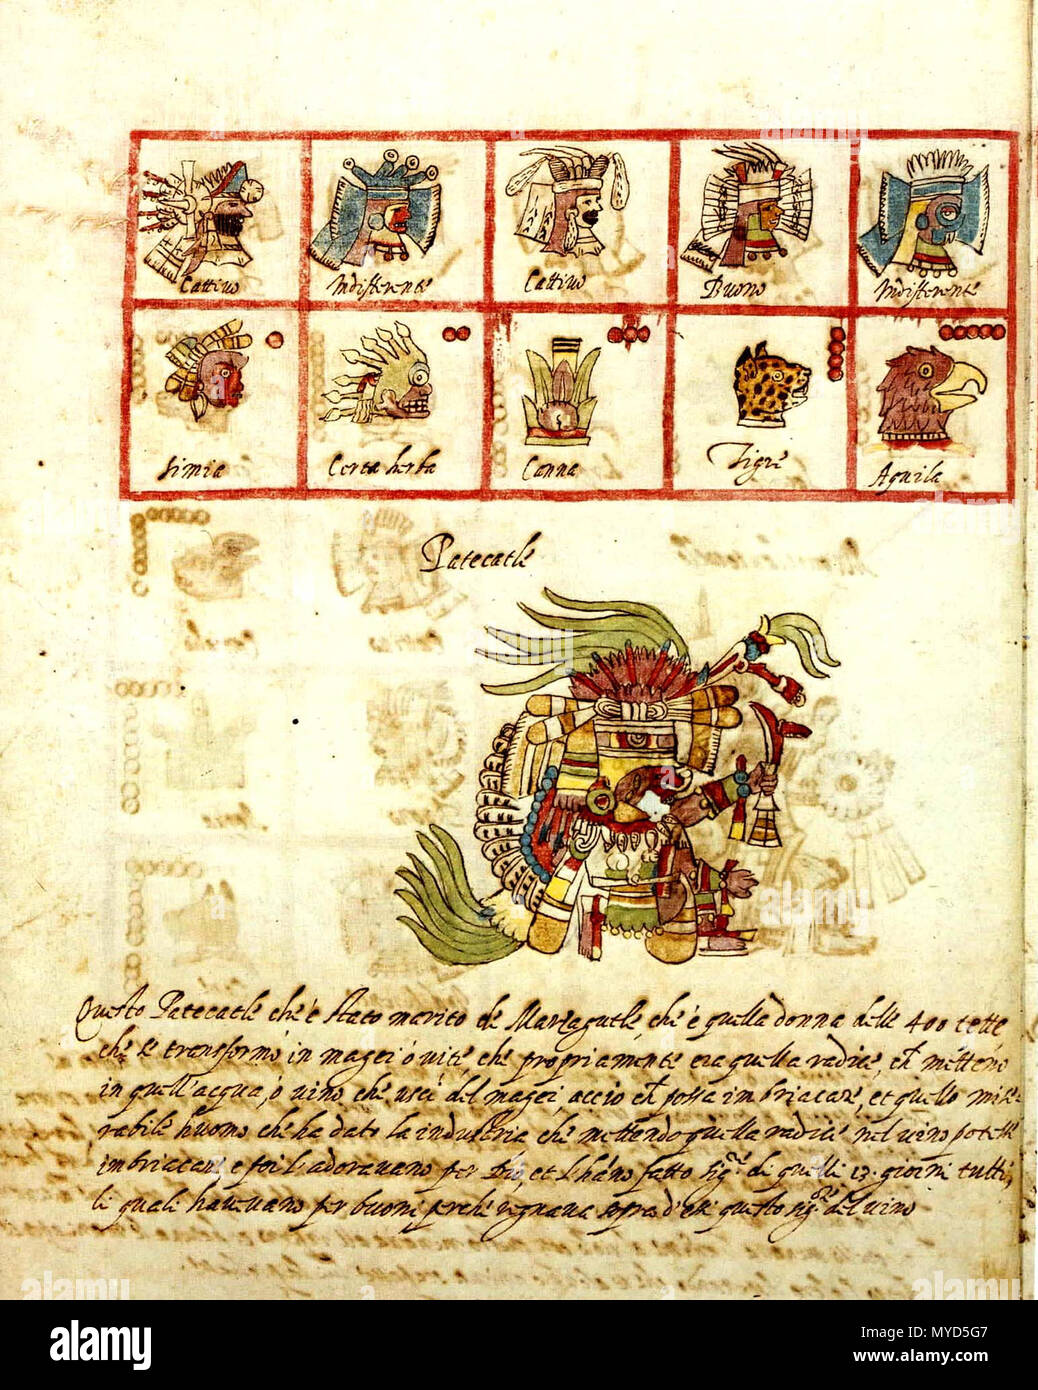 Cattivo Indifferente Cattivo Buono Indifferente
Simia Certa herba Canna Tigre Aquila
Patecatle
Questo Patecatle che è stato marito de che è quella donna delle 400 tette
che se transformò in magei ò vite, che propriamente era quella radice, mettono
in quell'acqua, ò vino che usci del magei, acciò possa imbriacare, et quello mise
rabile huomo che ha dato la industria che mettendo quella radice nel vino
e poi l'adoravano per Dio, et l'hano fatto sigre di quelli 13 giorni tutti,
li quali havevano per buoni perche regnava sopra d'essi questo sigre del vino
alamy
Image ID: MYD5G7
www.alamy.com